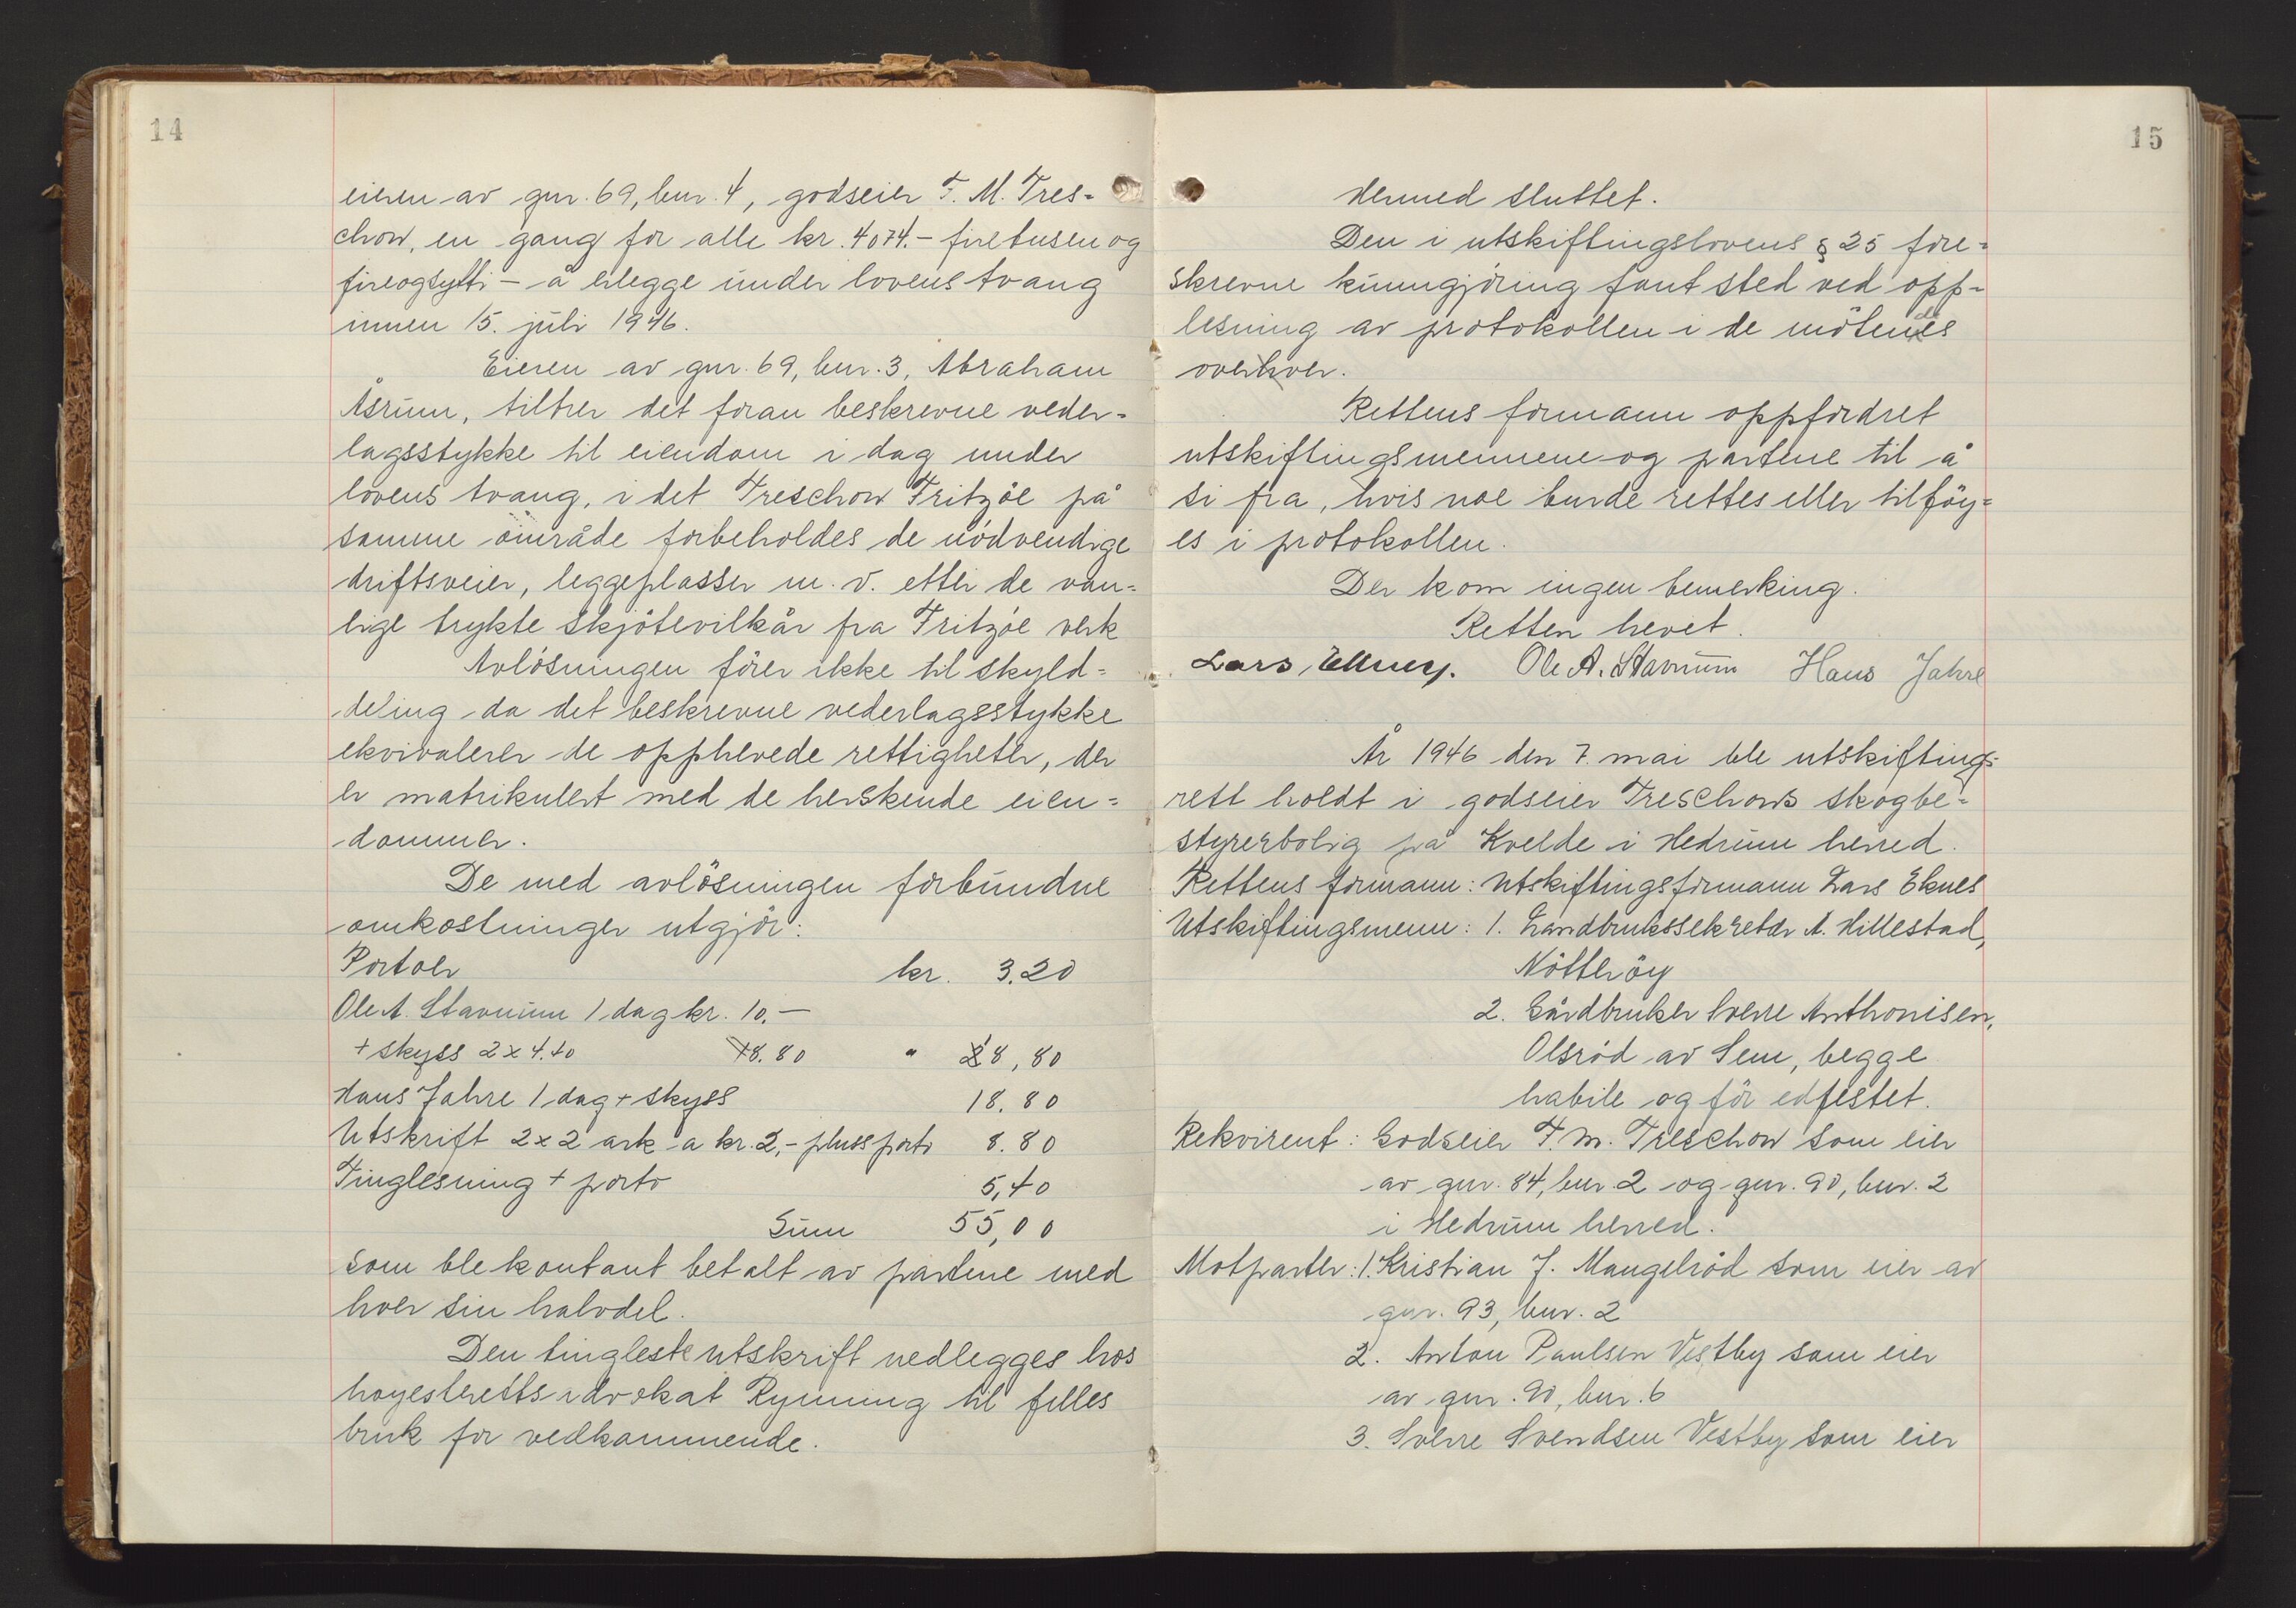 14
eieren av gnr. 69, bnr. 4, godseier F. M. Tres=
chow, en gang for alle kr. 4074.- firetusen og
fireogsytti - å erlegge under lovens tvang
innen 15. juli 1946.
Eieren av gnr. 69, bnr. 3, Abraham
Åsrum, tiltrer det foran beskrevne veder=
lagsstykke til eiendom i dag under
lovens tvang, i det Treschow Fritzöe på
samme område forbeholdes de nödvendige
driftsveier, leggeplasser m. v. etter de van=
lige trykte skjötevilkår fra Fritzöe verk
Avlösningen förer ikke til skyld=
deling da det beskrevne vederlagsstykke
ekvivalerer de opphevede rettigheter, der
er matrikulert med de herskende eien=
dommer.
De med avlösningen forbundne
omkostninger utgjör:
Portoer kr. 3.20
Ole A. Stavnum 1 dag kr. 10.-
+ skyss 2x4.40 8.80 " 18,80
Hans Jahre 1 dag + skyss 18.80
Utskrift 2x2 ark a kr. 2,- pluss porto 8.80
Tinglesning + porto 5,40
Sum 55,00
som ble kontant betalt av partene med
hver sin halvdel.
Den tinglest utskrift nedlegges hos
hoyesterettsadvokat Rynning til felles
bruk for vedkommende.
15
dermed sluttet.
Den i utskiftingslovens § 25 fore=
skrevne kunngjöring fant sted ved opp=
lesning av protokollen i de mötendes
overvær.
Rettens formann oppfordret
utskiftingsmennene og partene til å
si fra, hvis noe burde rettes eller tilföy=
es i protokollen.
Der kom ingen bemerking.
Retten hevet.
Lars Eknes. Ole A. Stavnum Hans Jahre
År 1946 den 7. mai ble utskiftings-
rett holdt i godseier Treschows skogbe=
styrerbolig på Kvelde i Hedrum herred.
Rettens formann: Utskiftingsformann Lars Eknes
Utskiftingsmenn: 1. Landbrukssekretær A. Hillestad,
Nötteröy
2. Gårdbruker Sverre Anthonisen,
Olsröd av Sem, begge
habile og för edfestet.
Rekvirent: Godseier F. M. Treschow som eier
av gnr. 84, bnr. 2 og gnr. 90, bnr. 2
i Hedrum herred.
Motparter: 1. Kristian J. Mangelröd som eier av
gnr. 93, bnr. 2
2. Anton Paulsen Vestby som eier
av gnr. 90, bnr. 6
3. Sverre Svendsen Vestby som eier